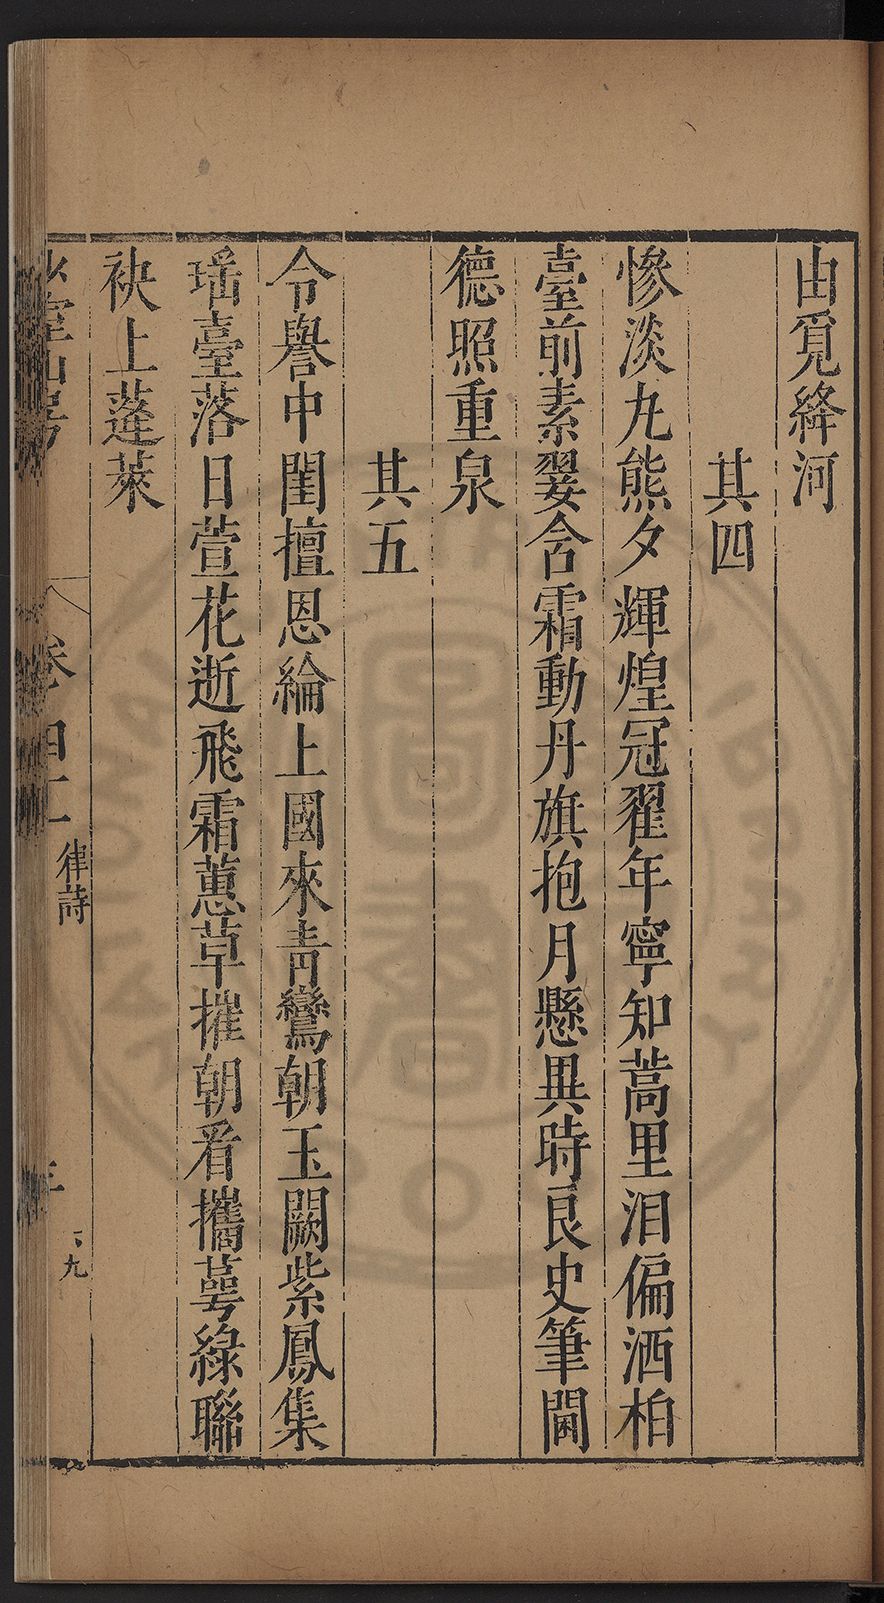 由覓絳河
其四
慘淡九熊夕輝煌冠翟年寧知蒿里泪偏洒柏
臺前素翣含霜動丹旗抱月懸異時良史筆閫
德照重泉
其五
令譽中閨擅恩綸上國來青鸞朝玉闕紫鳳集
瑶臺落日萱花逝飛霜蕙草摧朝看攜萼綠聯
袂上蓬萊
山房
卷四十二
律詩
三
九